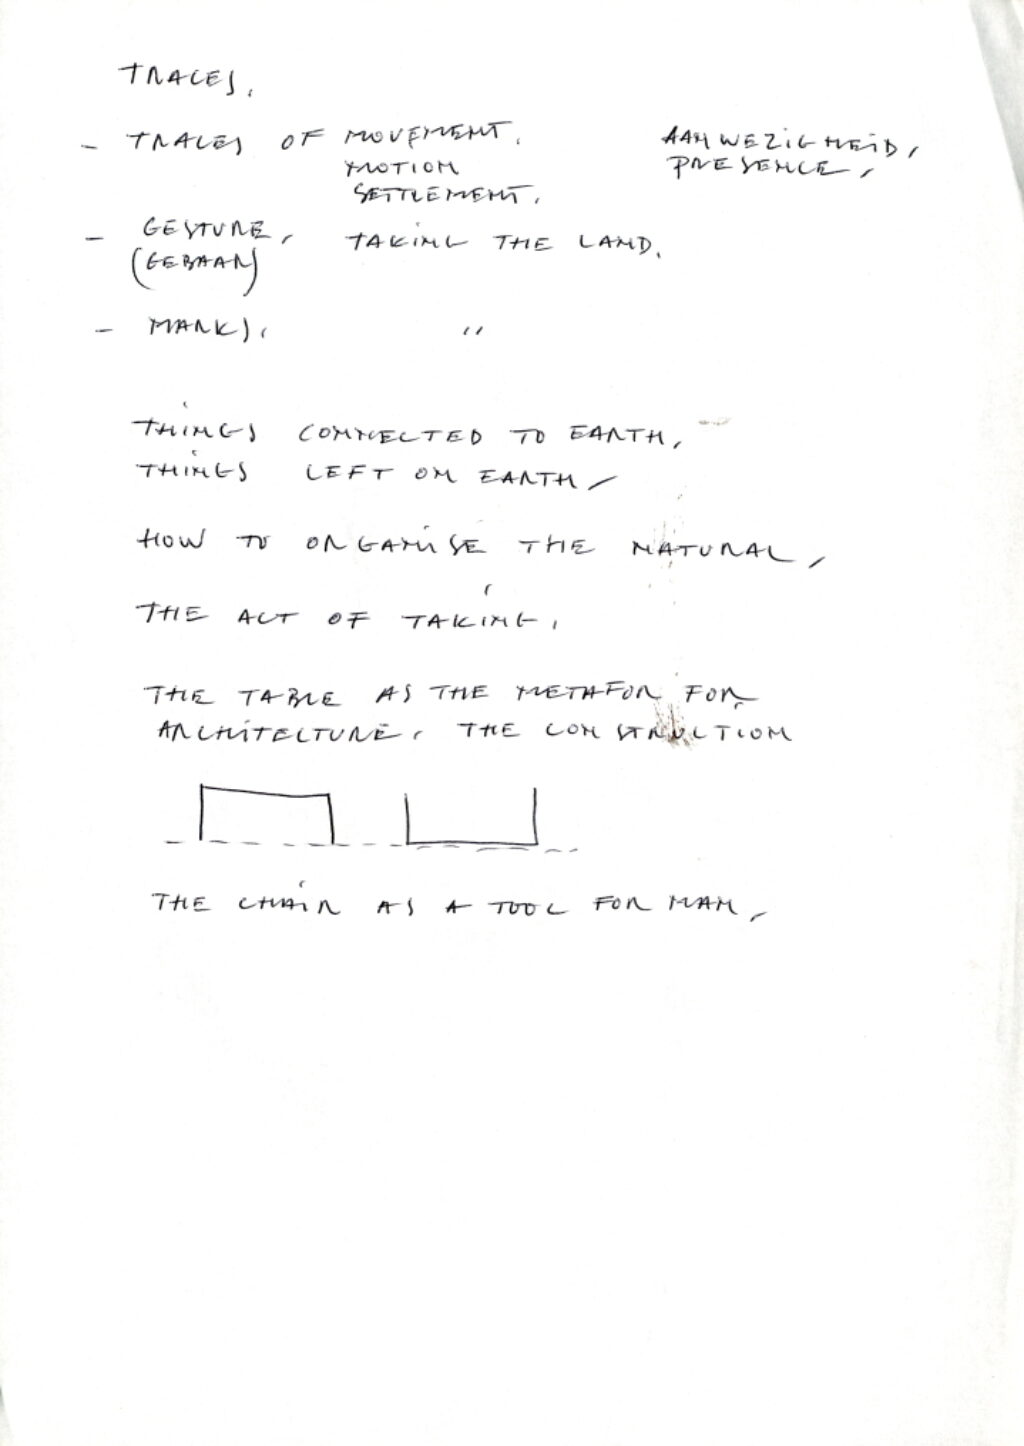 TRACES,
- TRACES OF MOVEMENT. AANWEZIGHEID,
MOTION PRESENCE,
SETTLEMENT.
- GESTURE, TAKING THE LAND.
(GEBAAR)
- MARKS, "
THINGS CONNECTED TO EARTH,
THINGS LEFT ON EARTH,
HOW TO ORGANISE THE NATURAL,
THE ACT OF TAKING,
THE TABLE AS THE METAFOR FOR
ARCHITECTURE, THE CONSTRUCTION
THE CHAIR AS A TOOL FOR MAN,